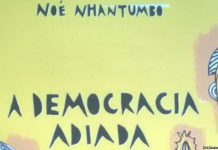 NOÉ NHANTUMBO
A DEMOCRACIA
ADIADA